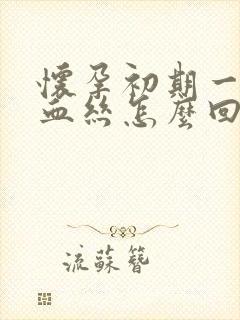 懷孕初期一
血絲怎麼回
流蘇簪